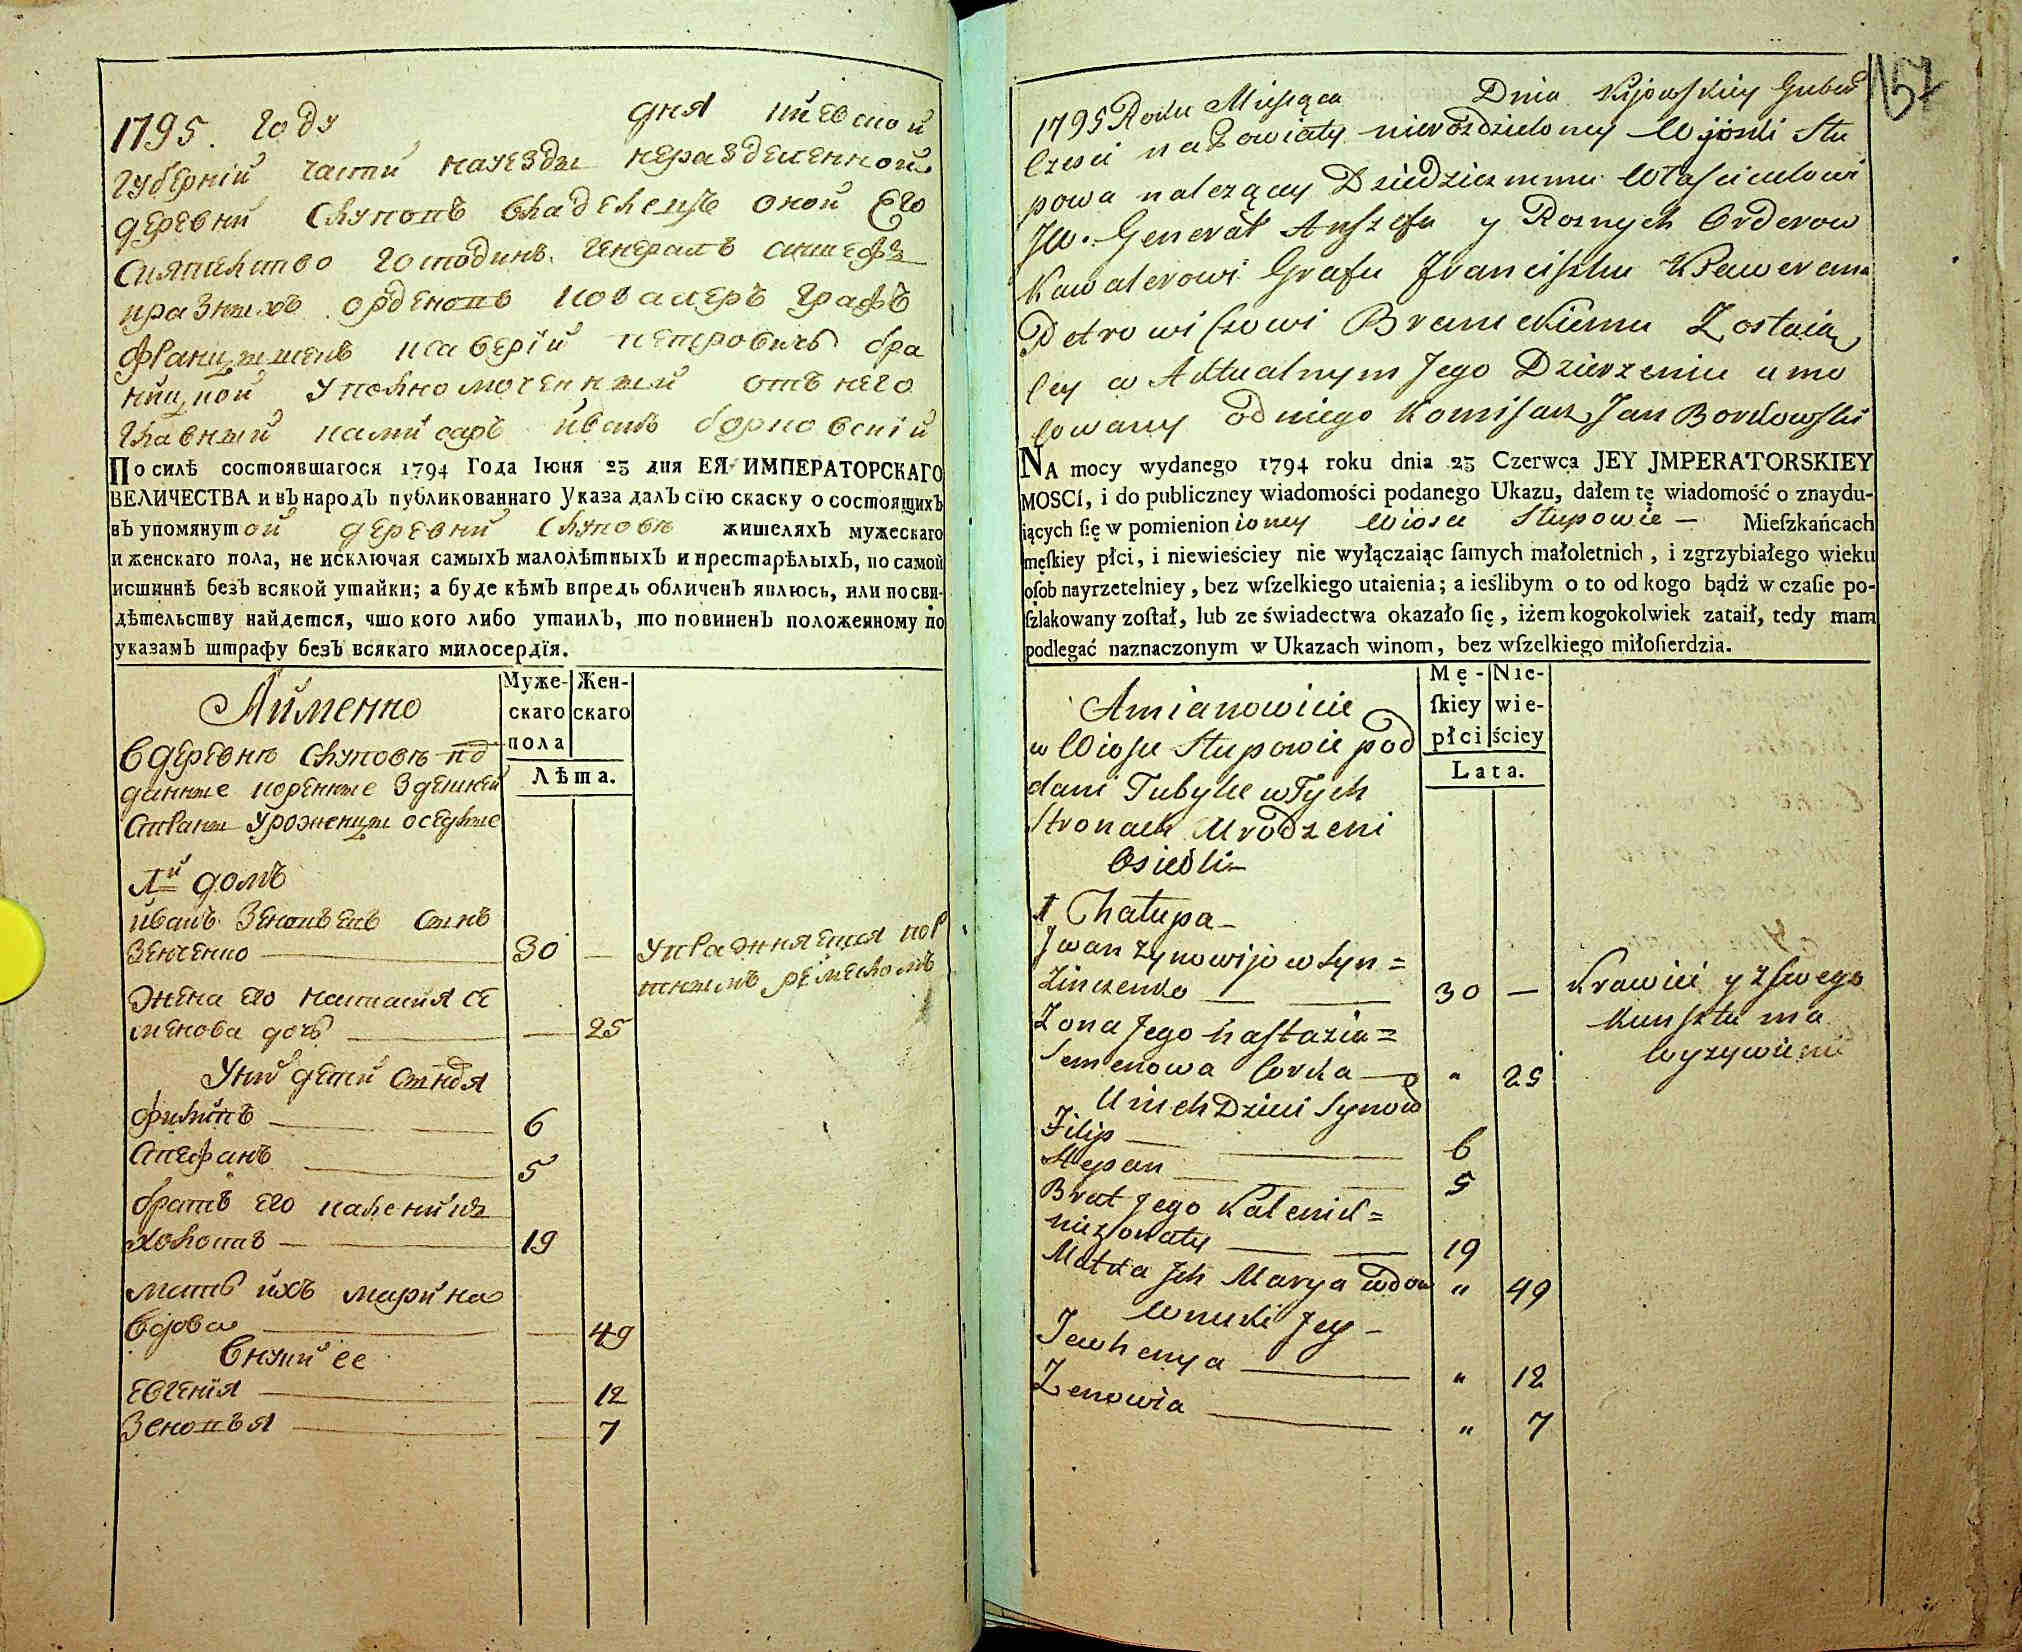 1795. Году дня киевской
губернїи части науезды неразделенной
деревни Слуповъ владелецъ оной Его
Сиятелство господинъ Генералъ аншефъ
и разныхъ орденовъ кавалеръ графъ
Францышекъ Ксаверїй Петровичъ бра
ницкой уполномоченный отъ него
главный камисаръ иванъ борковскїй
По силѣ состоявшагося 1794 Года Іюня 23 дня ЕЯ ИМПЕРАТОРСКАГО
ВЕЛИЧЕСТВА и въ народъ публикованнаго Указа далъ сїю скаску о состоящихъ
въ упомянутой деревни Слуповѣ жителяхъ мужескаго
и женскаго пола, не исключая самыхъ малолѣтныхъ и престарѣлыхъ, по самой
истиннѣ безъ всякой утайки; а буде кѣмъ впредь обличенъ явлюсь, или по сви-
дѣтельству найдется, что кого либо утаилъ, то повиненъ положенному по
указамъ штрафу безъ всякаго милосердїя.
Муже- Жен-
скаго скаго
пола
Лѣта.
Аименно
вдеревнѣ Слуповѣ под
данные коренные здешней
страны уроженцы оседлые
1й домъ
иванъ Зеновъевъ сынъ
Зенченко 30 — упражняется пор
тнымъ ремесломъ
жена его настасия се
менова дочь — 25
Уних детей сыновя
филипъ 6
Стефанъ 5
братъ его каленикъ
холостъ 19
мать ихъ марина
вдова — 49
внуки ее
евгения — 12
Зеновъя — 7
157
1795 Roku Miesiąca Dnia Kijowskiey Guber
Częsci na Powiaty nierozdzieloney Wioski Słu
powa nalezącey Dziedzicznmu Własciicielowi
JW. Generał Anszefu y Roznych Orderow
Kawalerowi Grafu Franciszku Xsaweremu
Petrowiczowi Braneckiemu Zostaią
cey w Aktualnym Jego Dzierzeniu umo
cowany od niego Komisarz Jan Borkowski
NA mocy wydanego 1794 roku dnia 23 Czerwca JEY JMPERATORSKIEY
MOSCI, i do publiczney wiadomości podanego Ukazu, dałem tę wiadomość o znaydu-
iących ſię w pomienion ioney Wiosce Słupowie — Mieſzkańcach
męſkiey płci, i niewieściey nie wyłączaiąc ſamych małoletnich, i zgrzybiałego wieku
oſob nayrzetelniey, bez wſzelkiego utaienia; a ieślibym o to od kogo bądź w czaſie po-
ſzlakowany zoſtał, lub ze świadectwa okazało ſię, iżem kogokolwiek zataił, tedy mam
podlegać naznaczonym w Ukazach winom, bez wſzelkiego miłoſierdzia.
Mę- Nie-
ſkiey wie-
płci ściey
Lata.
Amianowicie
w Wiosce Słupowie pod
dani Tubylce wTych
Stronach Urodzeni
Osiedli
1 Chałupa
Jwan Zynowijow Syn =
Zinczenko 30 — Krawiec y zſwego
kunſztu ma
wyzywienie
Zona Jego Nastazia =
Semenowa Corka " 25
Unich Dzieci Synow
Filip 6
Stepan 5
Brat Jego Kalenik =
niezonaty 19
Matka Jch Marya wdow " 49
Wnuki Jey —
Jewhenya " 12
Zenowia " 7